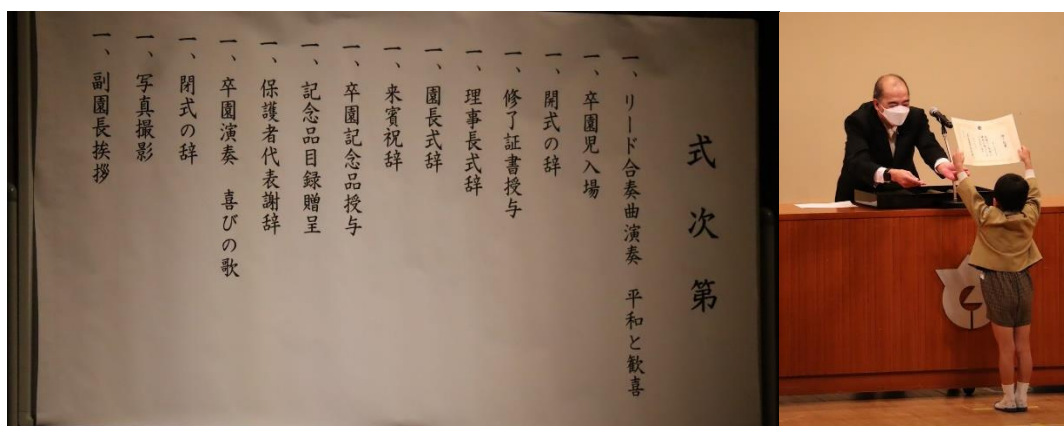 式次第
一、リード合奏曲演奏　平和と歓喜
一、卒園児入場
一、開式の辞
一、修了証書授与
一、理事長式辞
一、園長式辞
一、来賓祝辞
一、卒園記念品授与
一、記念品目録贈呈
一、保護者代表謝辞
一、卒園演奏　喜びの歌
一、閉式の辞
一、写真撮影
一、副園長挨拶